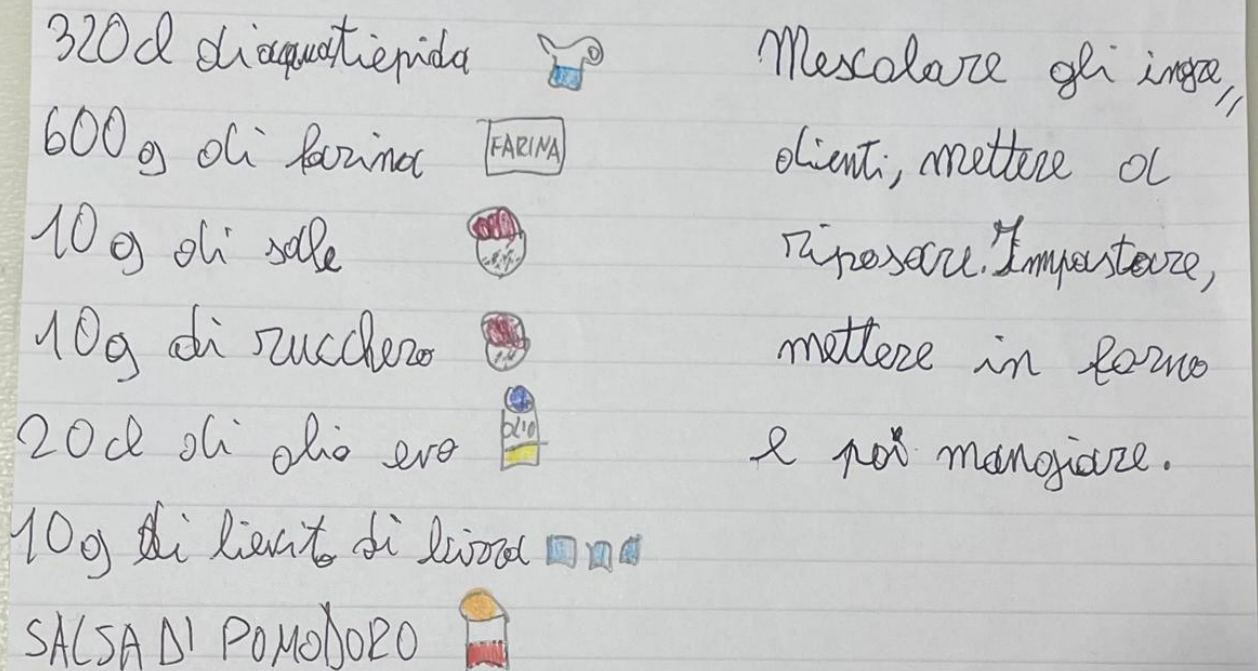 320d di acqua tiepida
600g di farina
FARINA
10g di sale
10g di zucchero
20d di olio evo
OLIO
10g di lievito di birra
SALSA DI POMODORO
Mescolare gli ingre,,
dienti, mettere a
riposare. Impastare,
mettere in forno
e poi mangiare.